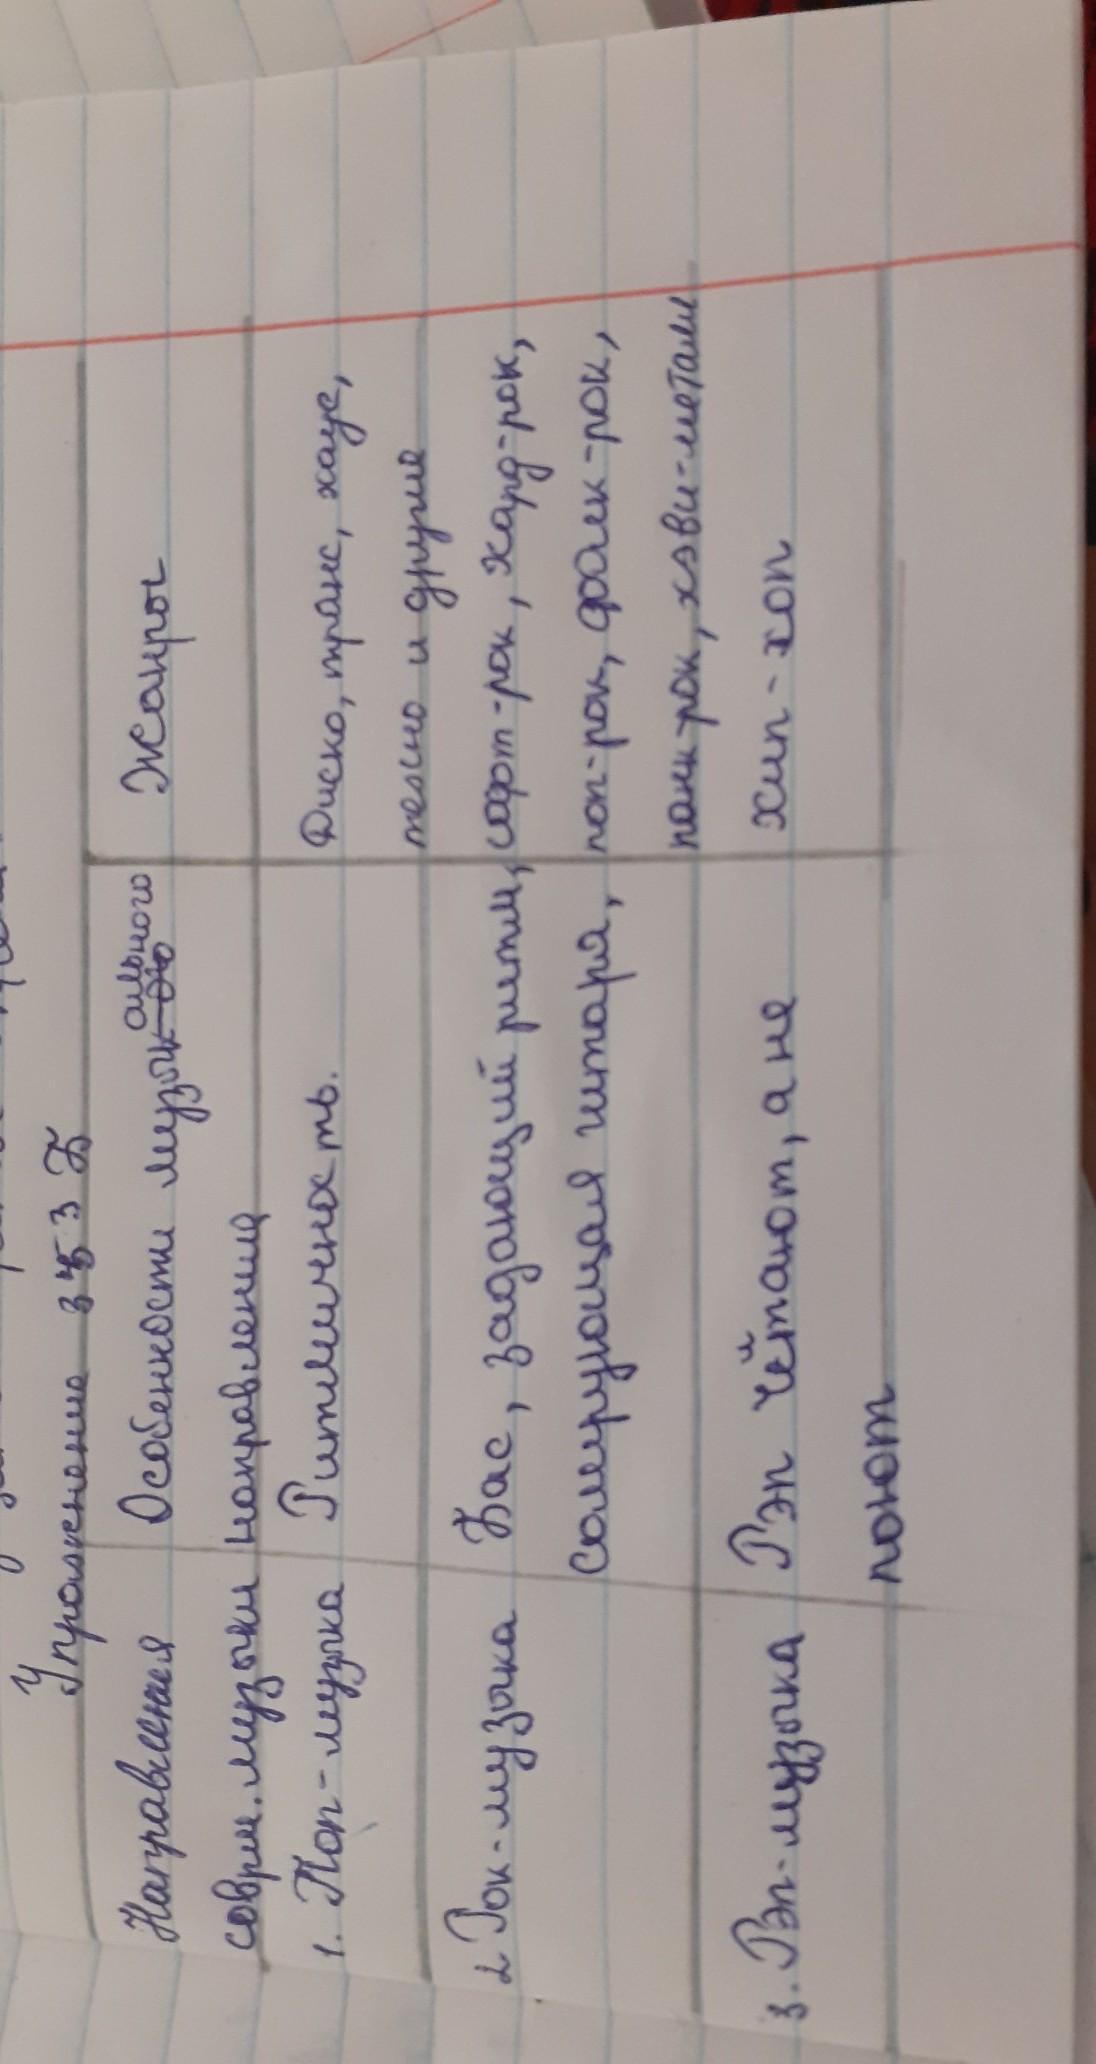 Упражнение 353 Б
Направления Особенности музыкального Жанры
соврем. музыки направления
1. Поп-музыка Ритмичность. Диско, транс, хаус,
техно и другие
2 Рок-музыка Бас, задающий ритм, софт-рок, хард-рок,
солирующая гитара, поп-рок, фолк-рок,
панк-рок, хэви-метали
3. Рэп-музыка Рэп читают, а не хип-хоп
поют